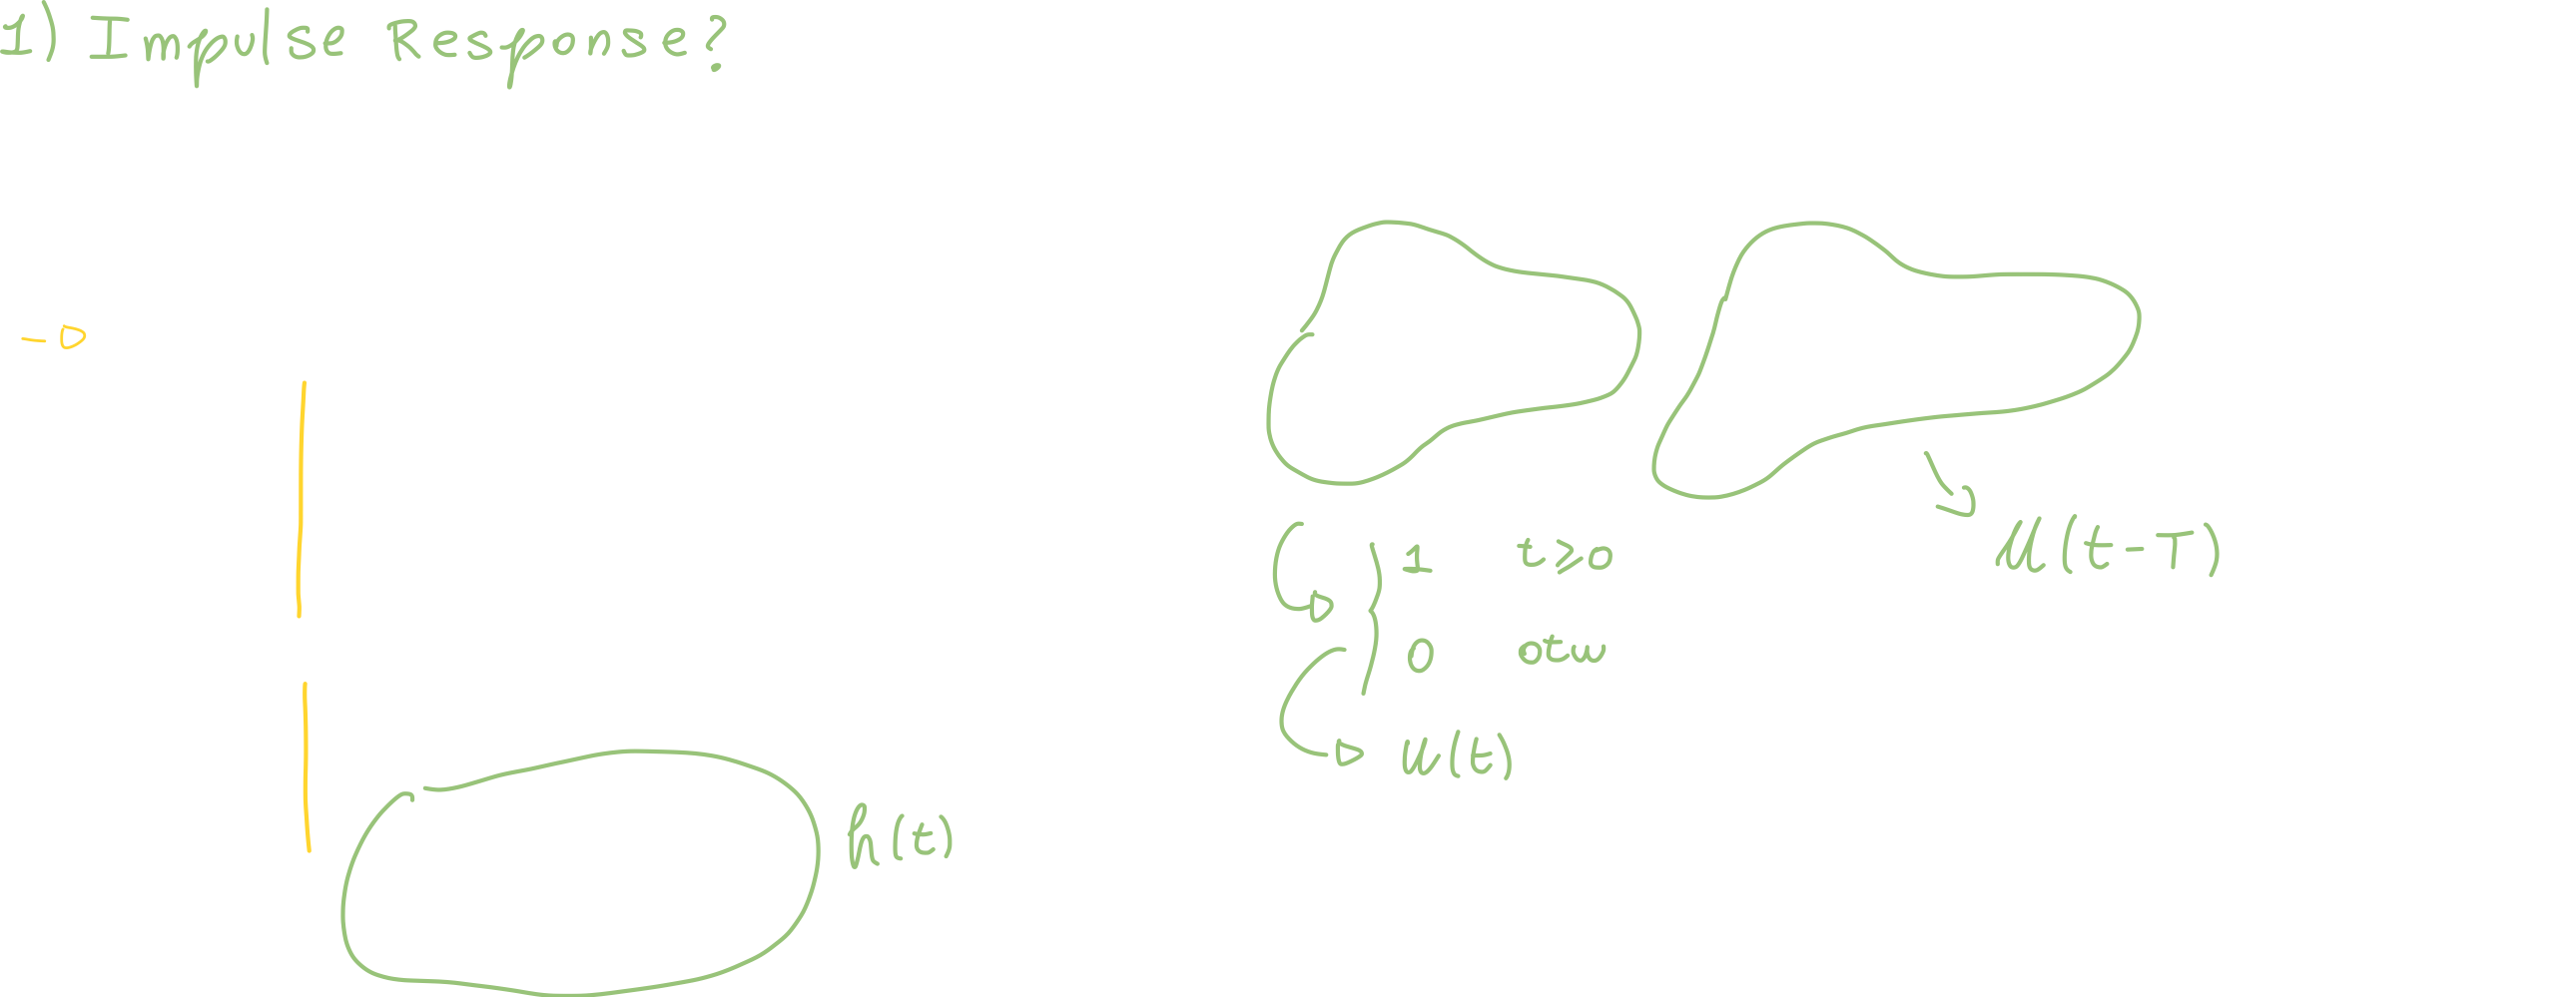 1) Impulse Response?
1 t≥0
u(t-T)
0 otw
u(t)
h(t)